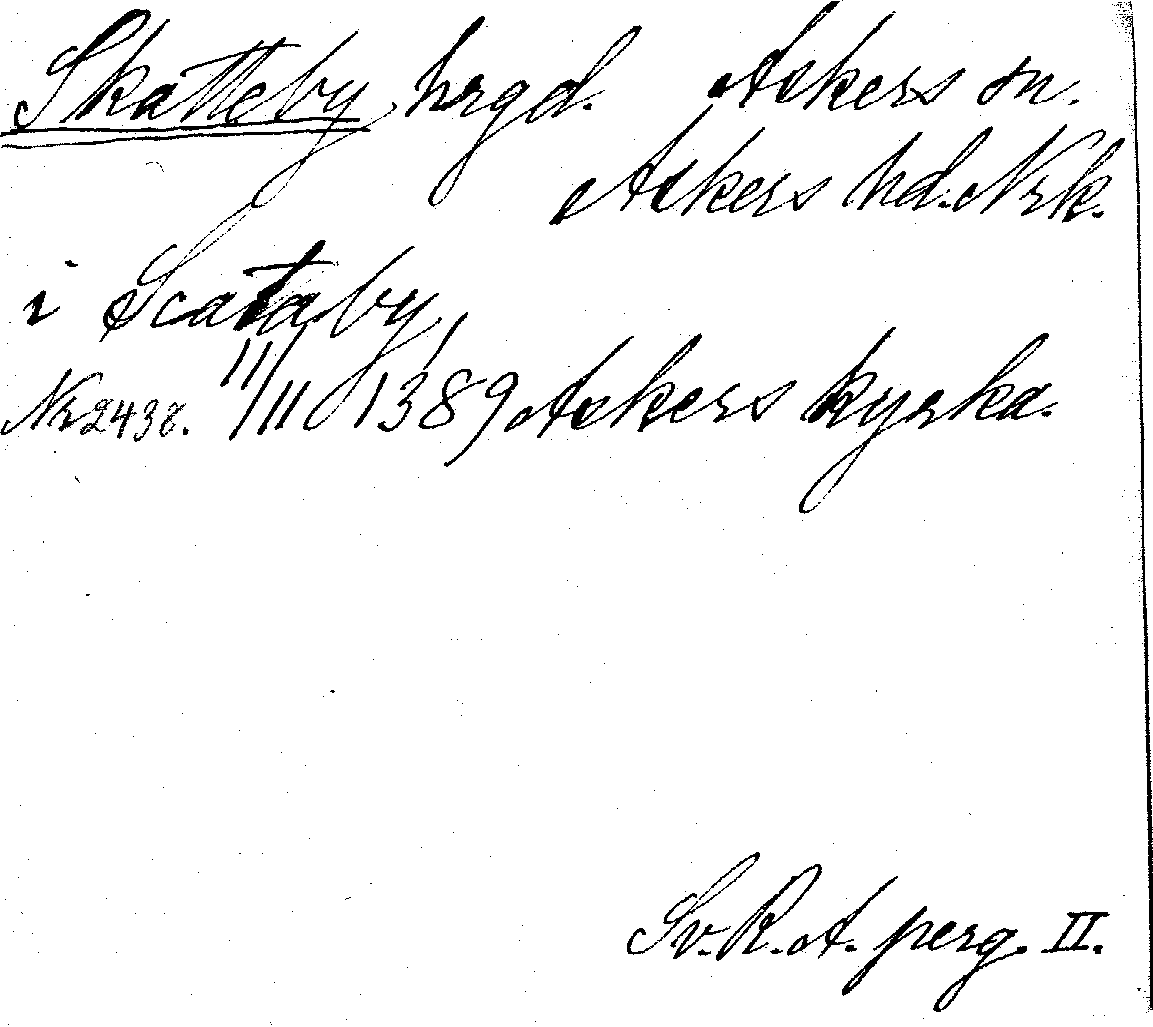 Skatteby hrgd. Askers sn.
Askers hd. Nrk.
i Scataby
Nr 2438. 11/11 1389 Askers kyrka.
Sv. R. A. perg. II.